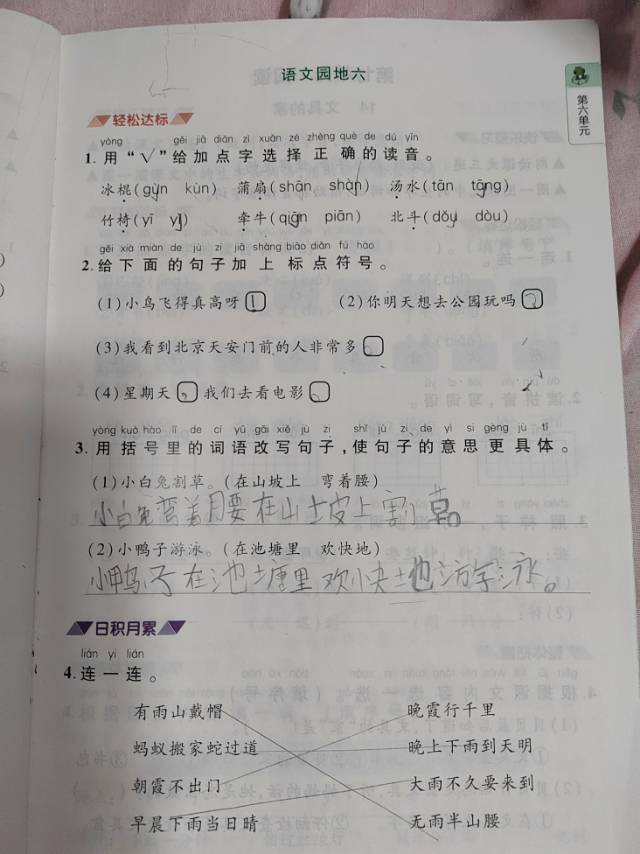 语文园地六
第六单元
轻松达标
yòng gěi jiā diǎn zì xuǎn zé zhèng què de dú yīn
1.用“√”给加点字选择正确的读音。
冰棍(gùn kùn) 蒲扇(shān shàn) 汤水(tān tāng)
竹椅(yī yǐ) 牵牛(qiān piān) 北斗(dǒu dòu)
gěi xià miàn de jù zi jiā shàng biāo diǎn fú hào
2.给下面的句子加上标点符号。
(1)小鸟飞得真高呀！ (2)你明天想去公园玩吗？
(3)我看到北京天安门前的人非常多
(4)星期天，我们去看电影。
yòng kuò hào lǐ de cí yǔ gǎi xiě jù zi shǐ jù zi de yì si gèng jù tǐ
3.用括号里的词语改写句子,使句子的意思更具体。
(1)小白兔割草。(在山坡上 弯着腰)
小白兔弯着腰在山坡上割草。
(2)小鸭子游泳。(在池塘里 欢快地)
小鸭子在池塘里欢快地游泳。
日积月累
lián yi lián
4.连一连。
有雨山戴帽 晚霞行千里
蚂蚁搬家蛇过道 晚上下雨到天明
朝霞不出门 大雨不久要来到
早晨下雨当日晴 无雨半山腰